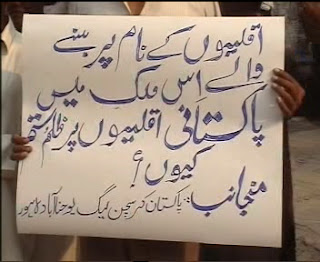 اقلیتوں کے نام پر بننے
والے اس ملک میں
پاکستانی اقلیتوں پر ظلم و ستم
کیوں؟
منجانب: پاکستان کرسچن لیگ یوحنا آباد لاہور